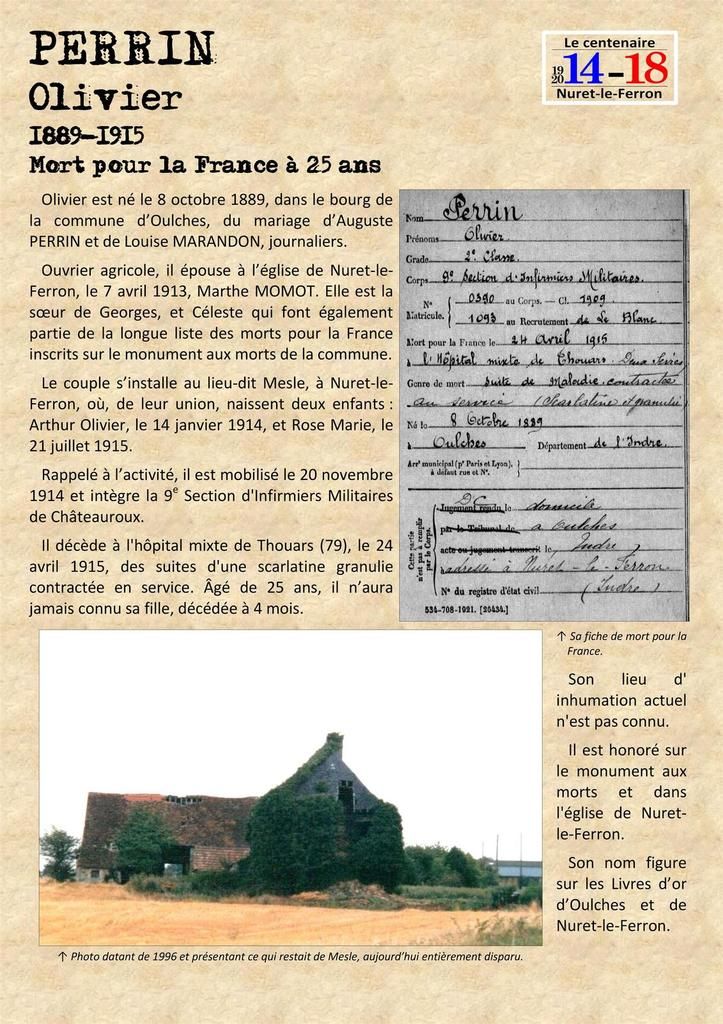 PERRIN
Olivier
1889-1915
Mort pour la France à 25 ans
Le centenaire
19 20 14-18
Nuret-le-Ferron
Olivier est né le 8 octobre 1889, dans le bourg de
la commune d'Oulches, du mariage d'Auguste
PERRIN et de Louise MARANDON, journaliers.
Ouvrier agricole, il épouse à l'église de Nuret-le-
Ferron, le 7 avril 1913, Marthe MOMOT. Elle est la
sœur de Georges, et Céleste qui font également
partie de la longue liste des morts pour la France
inscrits sur le monument aux morts de la commune.
Le couple s'installe au lieu-dit Mesle, à Nuret-le-
Ferron, où, de leur union, naissent deux enfants :
Arthur Olivier, le 14 janvier 1914, et Rose Marie, le
21 juillet 1915.
Rappelé à l'activité, il est mobilisé le 20 novembre
1914 et intègre la 9e Section d'Infirmiers Militaires
de Châteauroux.
Il décède à l'hôpital mixte de Thouars (79), le 24
avril 1915, des suites d'une scarlatine granulie
contractée en service. Âgé de 25 ans, il n'aura
jamais connu sa fille, décédée à 4 mois.
Nom Perrin
Prénoms Olivier
Grade 2e Classe
Corps 9e Section d'Infirmiers Militaires.
N° 0390 au Corps. — Cl. 1909
Matricule. 1093 au Recrutement de Le Blanc
Mort pour la France le 24 Avril 1915
à l'Hôpital mixte de Thouars
Genre de mort Suite de Maladie contractée
au service (Scarlatine et granulie)
Né le 8 Octobre 1889
à Oulches Département de l'Indre
Arrt municipal (pr Paris et Lyon),
à défaut rue et N°.
Cette partie n'est pas à remplir par le Corps.
Jugement rendu le domicilié
par le Tribunal de à Oulches
acte ou jugement transcrit le Indre
adressée à Nuret-le-Ferron
N° du registre d'état civil (Indre)
534-708-1921. [26434.]
↑ Sa fiche de mort pour la
France.
Son lieu d'
inhumation actuel
n'est pas connu.
Il est honoré sur
le monument aux
morts et dans
l'église de Nuret-
le-Ferron.
Son nom figure
sur les Livres d'or
d'Oulches et de
Nuret-le-Ferron.
↑ Photo datant de 1996 et présentant ce qui restait de Mesle, aujourd'hui entièrement disparu.